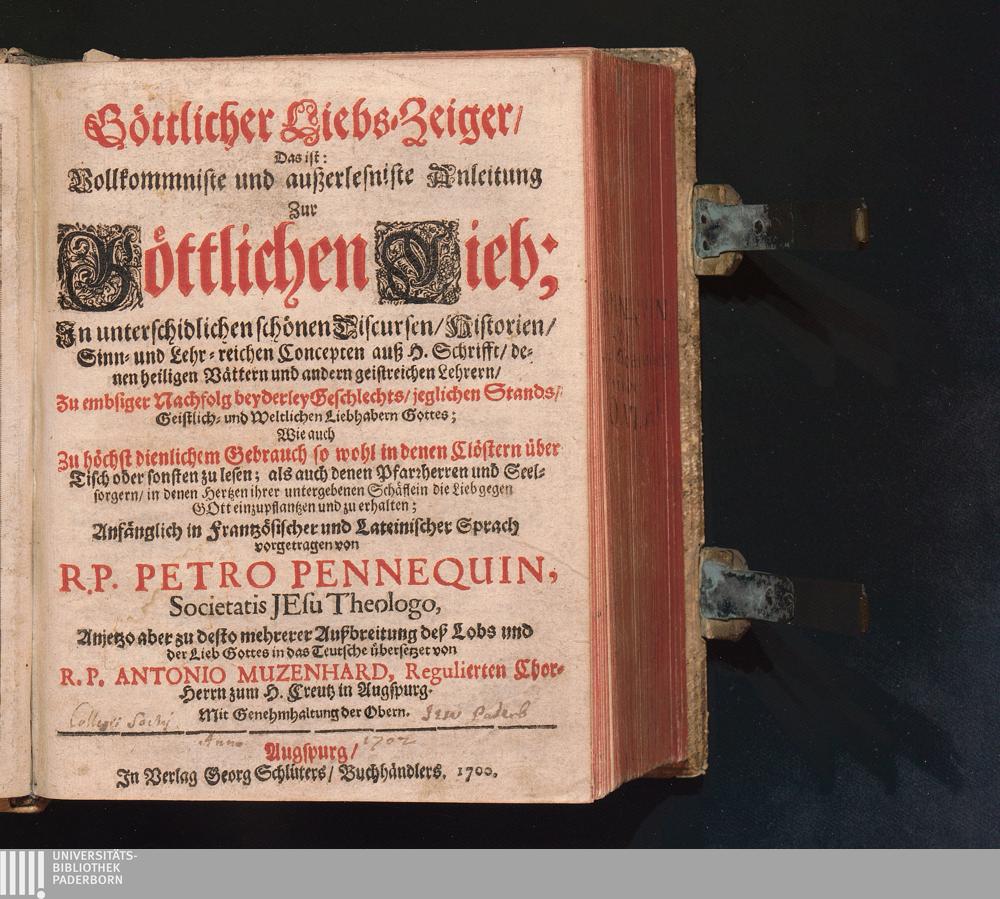 Göttlicher Liebs-Zeiger/
Das ist:
Vollkommniste und außerlesniste Anleitung
Zur
Göttlichen Lieb;
In unterschidlichen schönen Discursen/ Historien/
Sinn- und Lehr-reichen Concepten auß H. Schrifft/ de-
nen heiligen Vättern und andern geistreichen Lehrern/
Zu embsiger Nachfolg beyderley Geschlechts/ jeglichen Stands/
Geistlich- und Weltlichen Liebhabern Gottes;
Wie auch
Zu höchst dienlichem Gebrauch so wohl in denen Clöstern über
Tisch oder sonsten zu lesen; als auch denen Pfarrherren und Seel-
sorgern/ in denen Hertzen ihrer untergebenen Schäflein die Lieb gegen
GOtt einzupflantzen und zu erhalten;
Anfänglich in Frantzösischer und Lateinischer Sprach
vorgetragen von
R.P. PETRO PENNEQUIN,
Societatis JEsu Theologo,
Anjetzo aber zu desto mehrerer Außbreitung deß Lobs und
der Lieb Gottes in das Teutsche übersetzet von
R.P. ANTONIO MUZENHARD, Regulierten Chor-
Herrn zum H. Creutz in Augspurg.
Mit Genehmhaltung der Obern.
Collegii Socty Jesu Paderb
Anno 1702
Augspurg/
In Verlag Georg Schlüters/ Buchhändlers. 1700.
UNIVERSITÄTS-
BIBLIOTHEK
PADERBORN